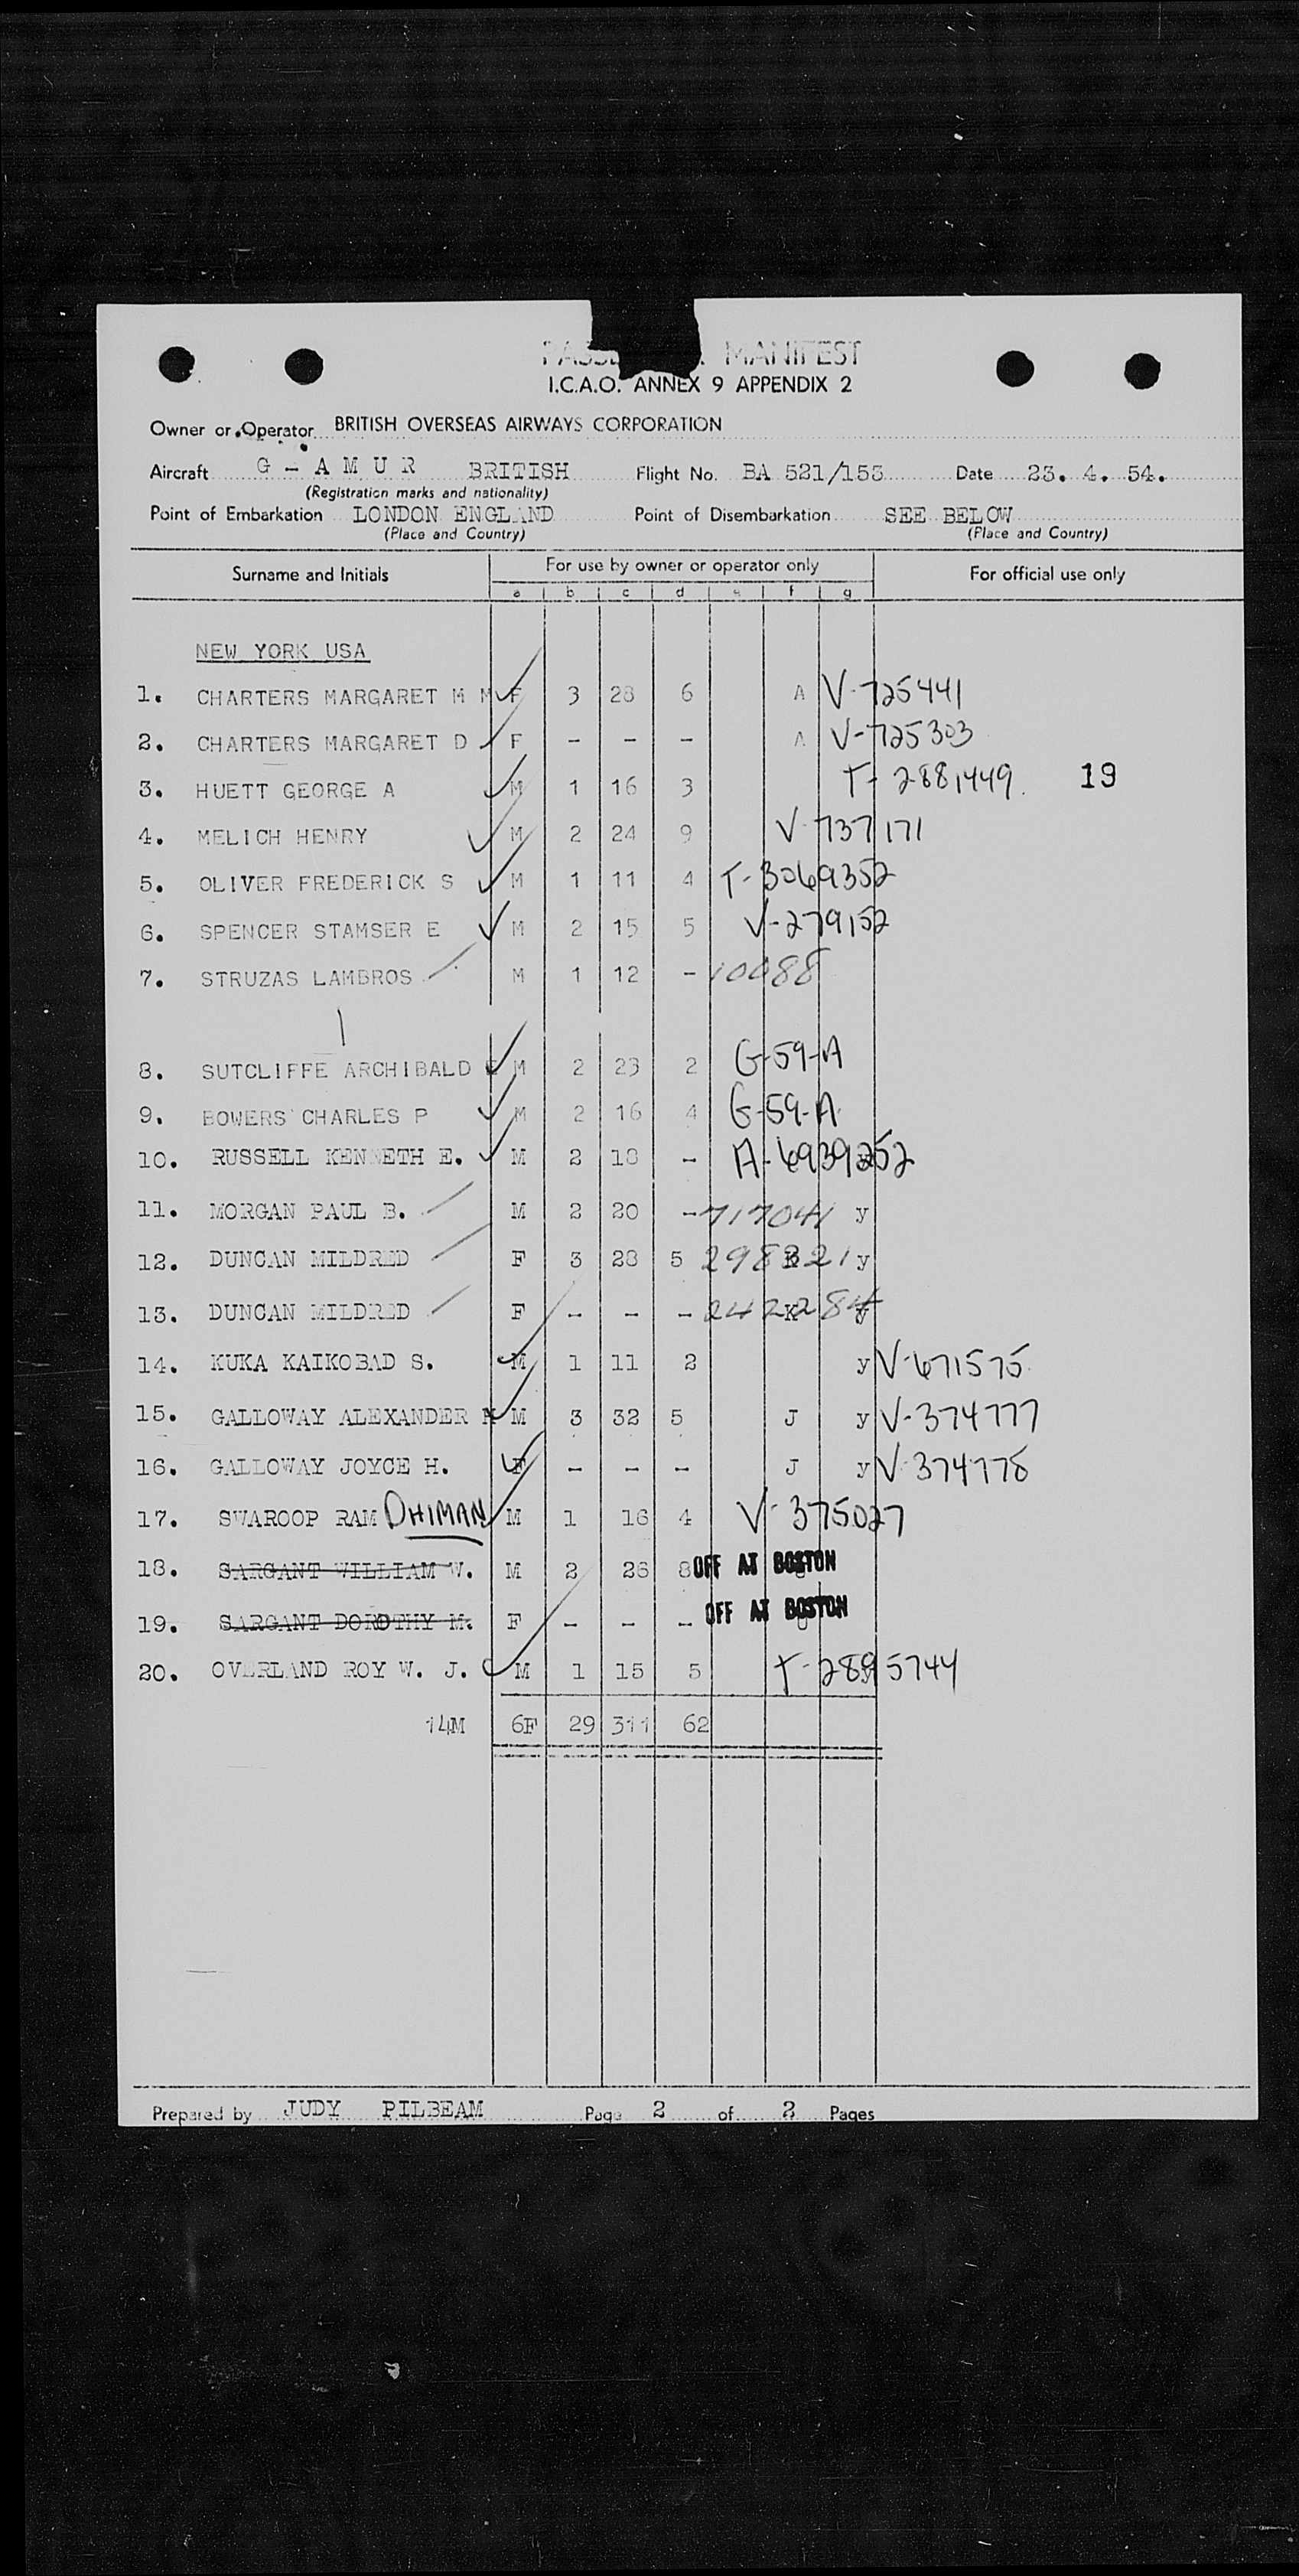 PASSE MANIFEST
I.C.A.O. ANNEX 9 APPENDIX 2
Owner or Operator BRITISH OVERSEAS AIRWAYS CORPORATION
Aircraft G - A M U R BRITISH Flight No. BA 521/153 Date 23. 4. 54.
(Registration marks and nationality)
Point of Embarkation LONDON ENGLAND Point of Disembarkation SEE BELOW
(Place and Country) (Place and Country)
Surname and Initials For use by owner or operator only For official use only
a b c d e f g
NEW YORK USA
1. CHARTERS MARGARET M M F 3 28 6 A V-725441
2. CHARTERS MARGARET D F - - - A V-725303
3. HUETT GEORGE A M 1 16 3 T-2881449. 19
4. MELICH HENRY M 2 24 9 V-737171
5. OLIVER FREDERICK S M 1 11 4 T-3069352
6. SPENCER STAMSER E M 2 15 5 V-279152
7. STRUZAS LAMBROS M 1 12 - 10088
8. SUTCLIFFE ARCHIBALD M 2 23 2 G-59-A
9. BOWERS CHARLES P M 2 16 4 G-59-A
10. RUSSELL KENNETH E. M 2 18 - A-6939252
11. MORGAN PAUL B. M 2 20 - 717041 y
12. DUNCAN MILDRED F 3 28 5 298321 y
13. DUNCAN MILDRED F - - - 242284 K y
14. KUKA KAIKOBAD S. M 1 11 2 y V-671575
15. GALLOWAY ALEXANDER M 3 32 5 J y V-374777
16. GALLOWAY JOYCE H. F - - - J y V-374778
17. SWAROOP RAM DHIMAN M 1 16 4 V-375027
18. SARGANT WILLIAM W. M 2 26 8 OFF AT BOSTON
19. SARGANT DOROTHY M. F - - - OFF AT BOSTON
20. OVERLAND ROY W. J. M 1 15 5 T-2895744
14M 6F 29 311 62
Prepared by JUDY PILBEAM Page 2 of 2 Pages